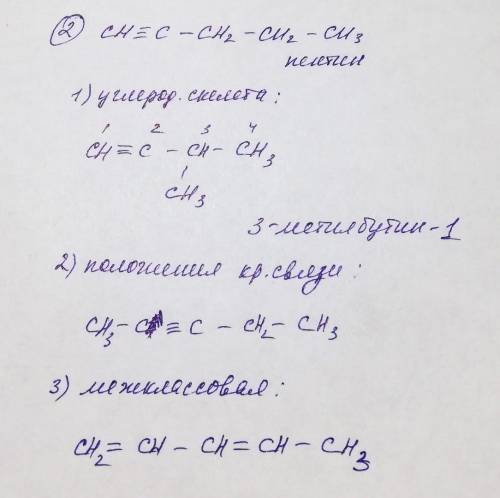 ② CH≡C – CH₂ – CH₂ – CH₃
пентин
1) углерод. скелета:
1 2 3 4
CH≡C – CH – CH₃
CH₃
3-метилбутин-1
2) положения кр. связи:
CH₃ – C≡C – CH₂ – CH₃
3) межклассовая:
CH₂=CH – CH=CH – CH₃